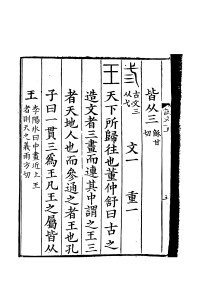 皆从三穌甘切
弎古文三从弋　文一　重一
王天下所歸往也董仲舒曰古之
造文者三畫而連其中謂之王三
者天地人也而參通之者王也孔
子曰一貫三爲王凡王之屬皆从
王李陽冰曰中畫近上王者則天之義雨方切